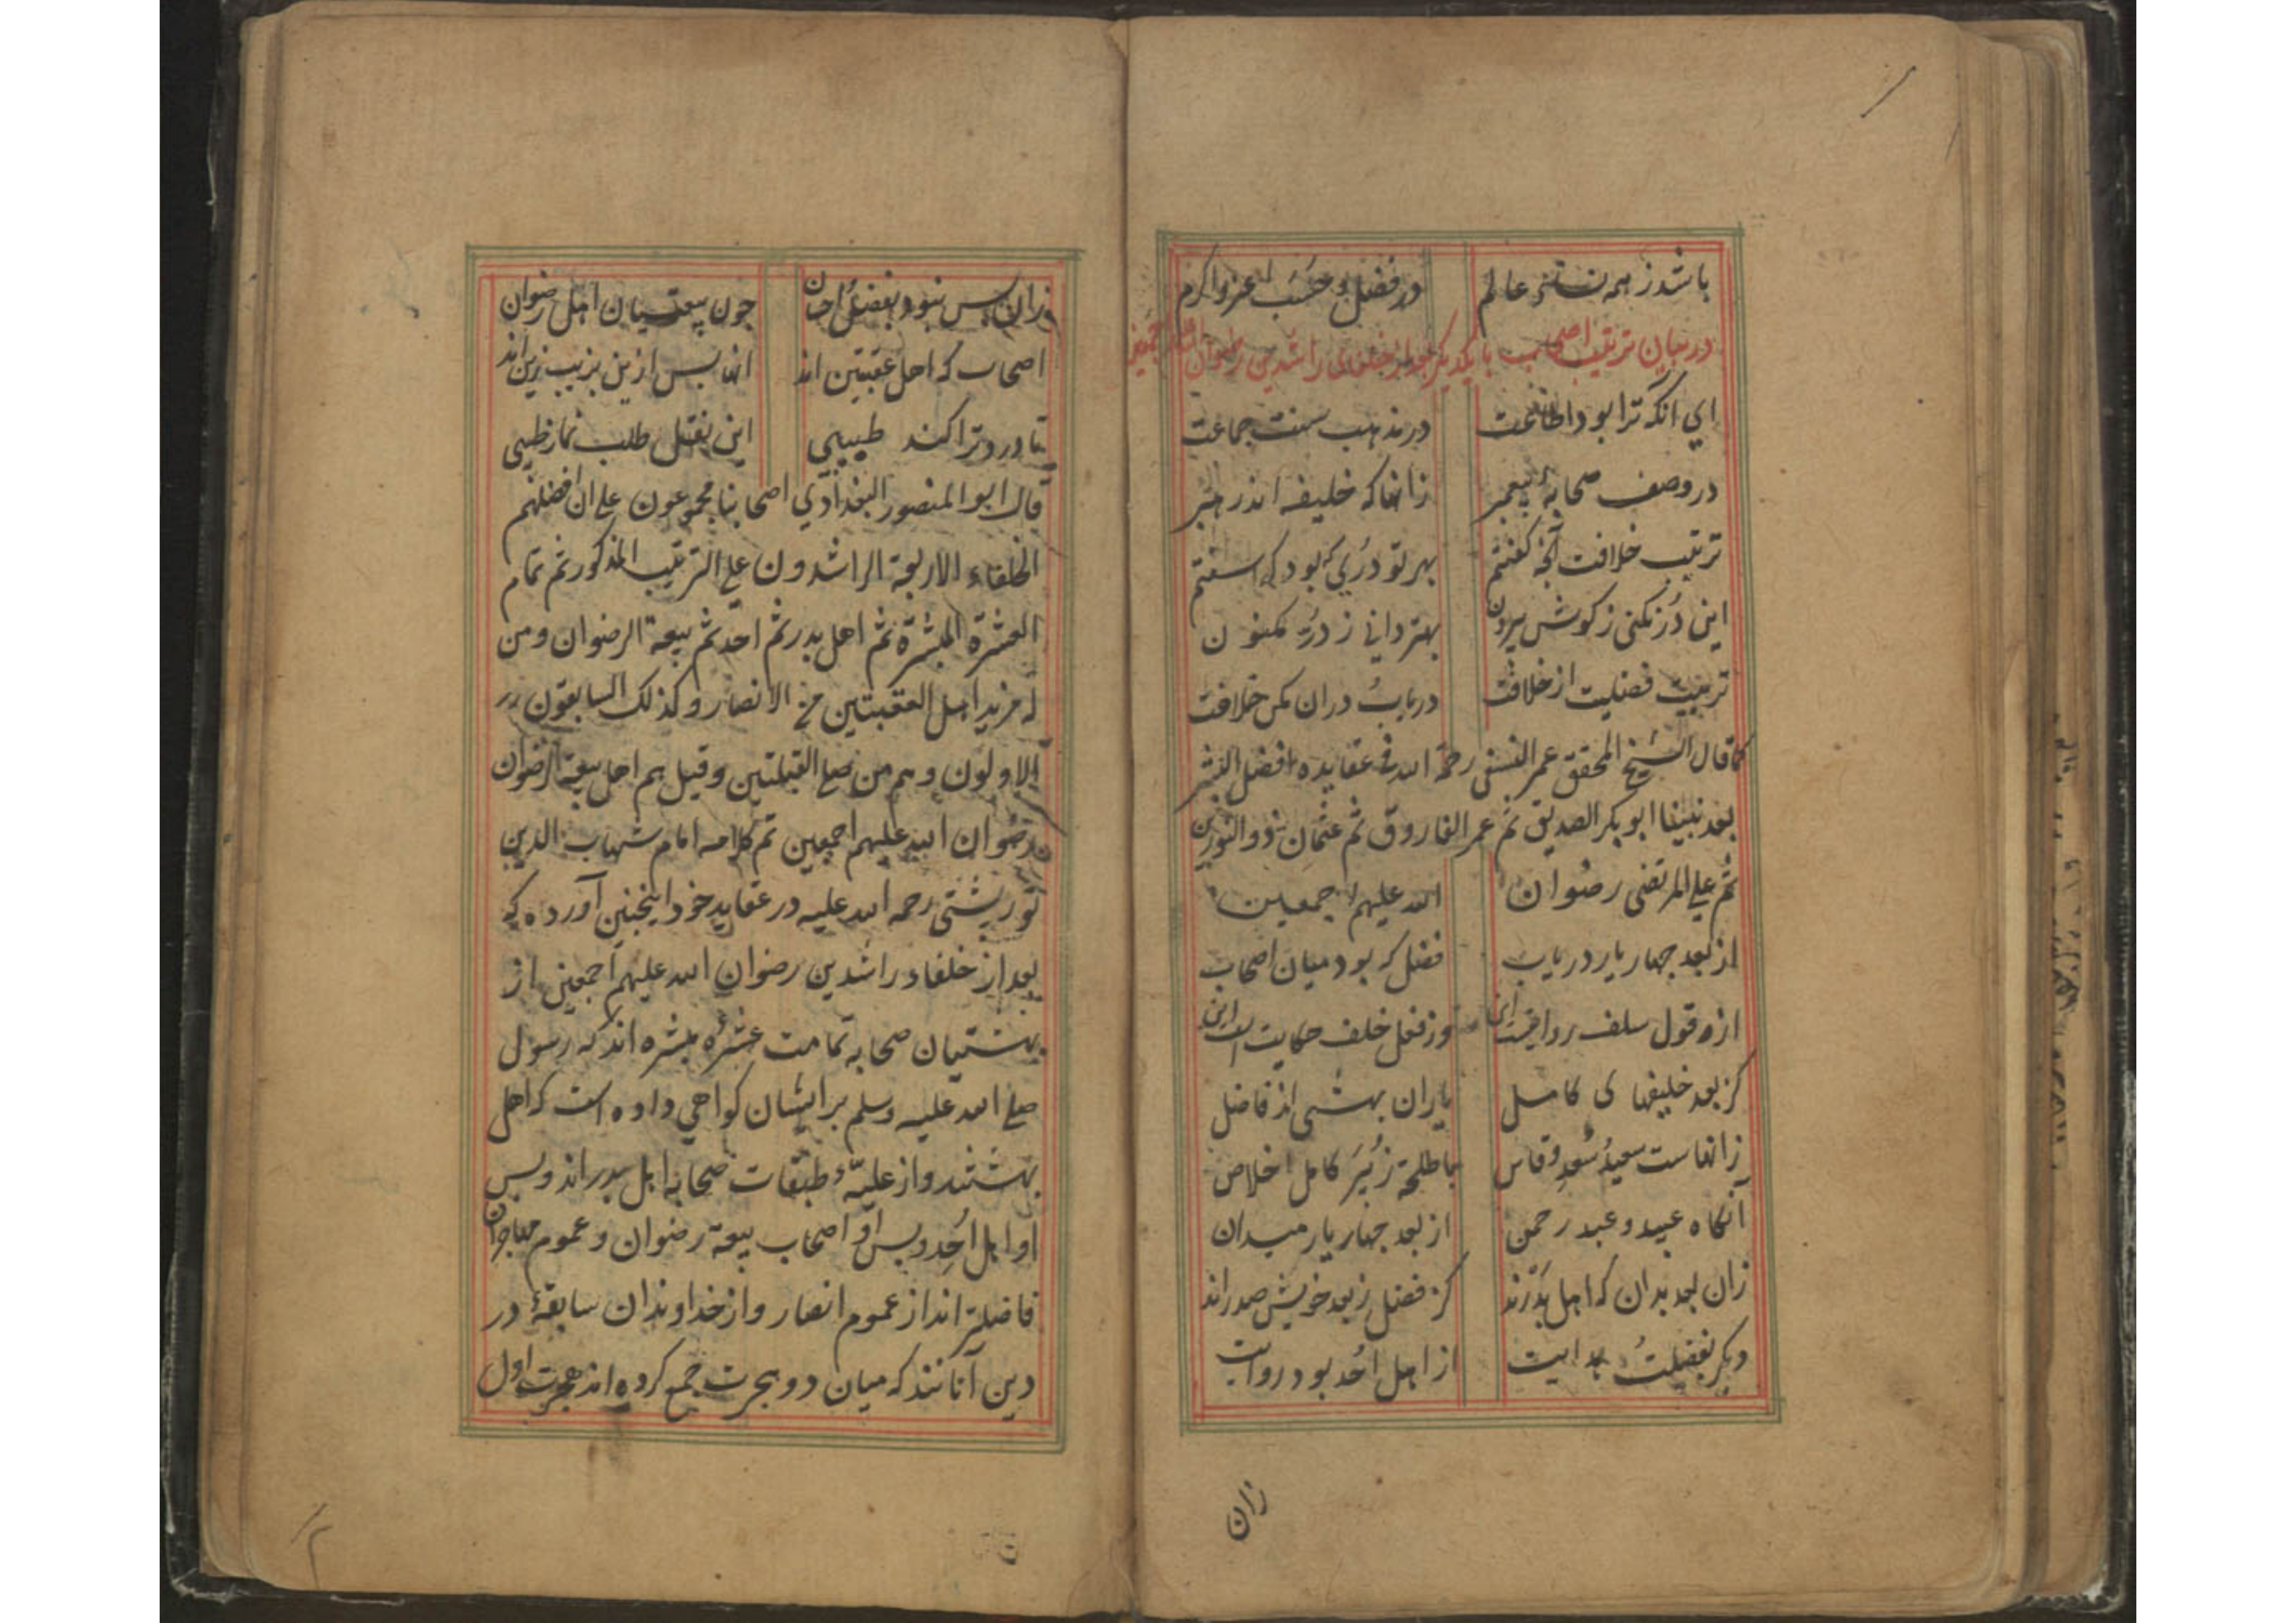 باشد ز همه عالم
در فضل و حسب اعز و اکرم
در بیان ترتیب اصحاب با یکدیگر بعد از خلفای راشدین رضوان الله اجمعین
ای انکه ترا بود اطاعت
در مذهب سنت جماعت
در وصف صحابهٔ پیغمبر
زانها که خلیفه اند رهبر
ترتیب خلافت آنچه گفتم
بهر تو دری که بود سفتم
این در نکنی ز کوش بیرون
بهتر دانی ز در مکنون
ترتیب فضیلت از خلافت
دریاب دران مکن خلافت
کما قال الشیخ المحقق عمر النسفی رحمة الله فی عقایده افضل البشر
بعد نبینا ابو بکر الصدیق ثم عمر الفاروق ثم عثمان ذو النورین
ثم علی المرتضی رضوان
الله علیهم اجمعین
از بعد چهار یار دریاب
فضل که بود میان اصحاب
از قول سلف روایت این
وز نقل خلف حکایت است این
کز بعد خلیفهای کامل
یاران بهشتی اند فاضل
زانهاست سعید و سعد وقاص
با طلحة زبیر کامل اخلاص
آنکاه عبید و عبد رحمن
از بعد چهار یار میدان
زان بعد بدان که اهل بدرند
کز فضل ز بعد خویش صدراند
دیکر بفضیلت بدایت
از اهل احد بود روایت
زان
زان پس نبود بفضل احسان
چون بیعتیان اهل رضوان
اصحاب که اهل عقبتین اند
انها پس ازین بزیب زین اند
تا درد ترا کند طبیبی
این نقل طلب نما ز طیبی
قال ابو المنصور البغدادی اصحابنا مجموعون علی ان افضلهم
الخلفاء الاربعة الراشدون علی الترتیب المذکور ثم تمام
العشرة المبشرة ثم اهل بدر ثم احد ثم بیعة الرضوان و من
له مزید اهل العقبتین من الانصار و کذلک السابقون
الاولون و هم من صلی القبلتین و قیل هم اهل بیعة الرضوان
رضوان الله علیهم اجمعین تم کلامه امام شهاب الدین
تورپشتی رحمه الله علیه در عقاید خود اینچنین آورده که
بعد از خلفاء راشدین رضوان الله علیهم اجمعین از
بهشتیان صحابه تمامت عشرهٔ مبشره اند که رسول
صلی الله علیه وسلم بر ایشان کواهی داده است که اهل
بهشتند و از علیهٔ طبقات صحابه اهل بدر اند و پس
او اهل احد و پس او اصحاب بیعة رضوان و عموم مهاجران
فاضلتر اند از عموم انصار و از خداوندان سابقهٔ در
دین آنانند که میان دو هجرت جمع کرده اند هجرت اول